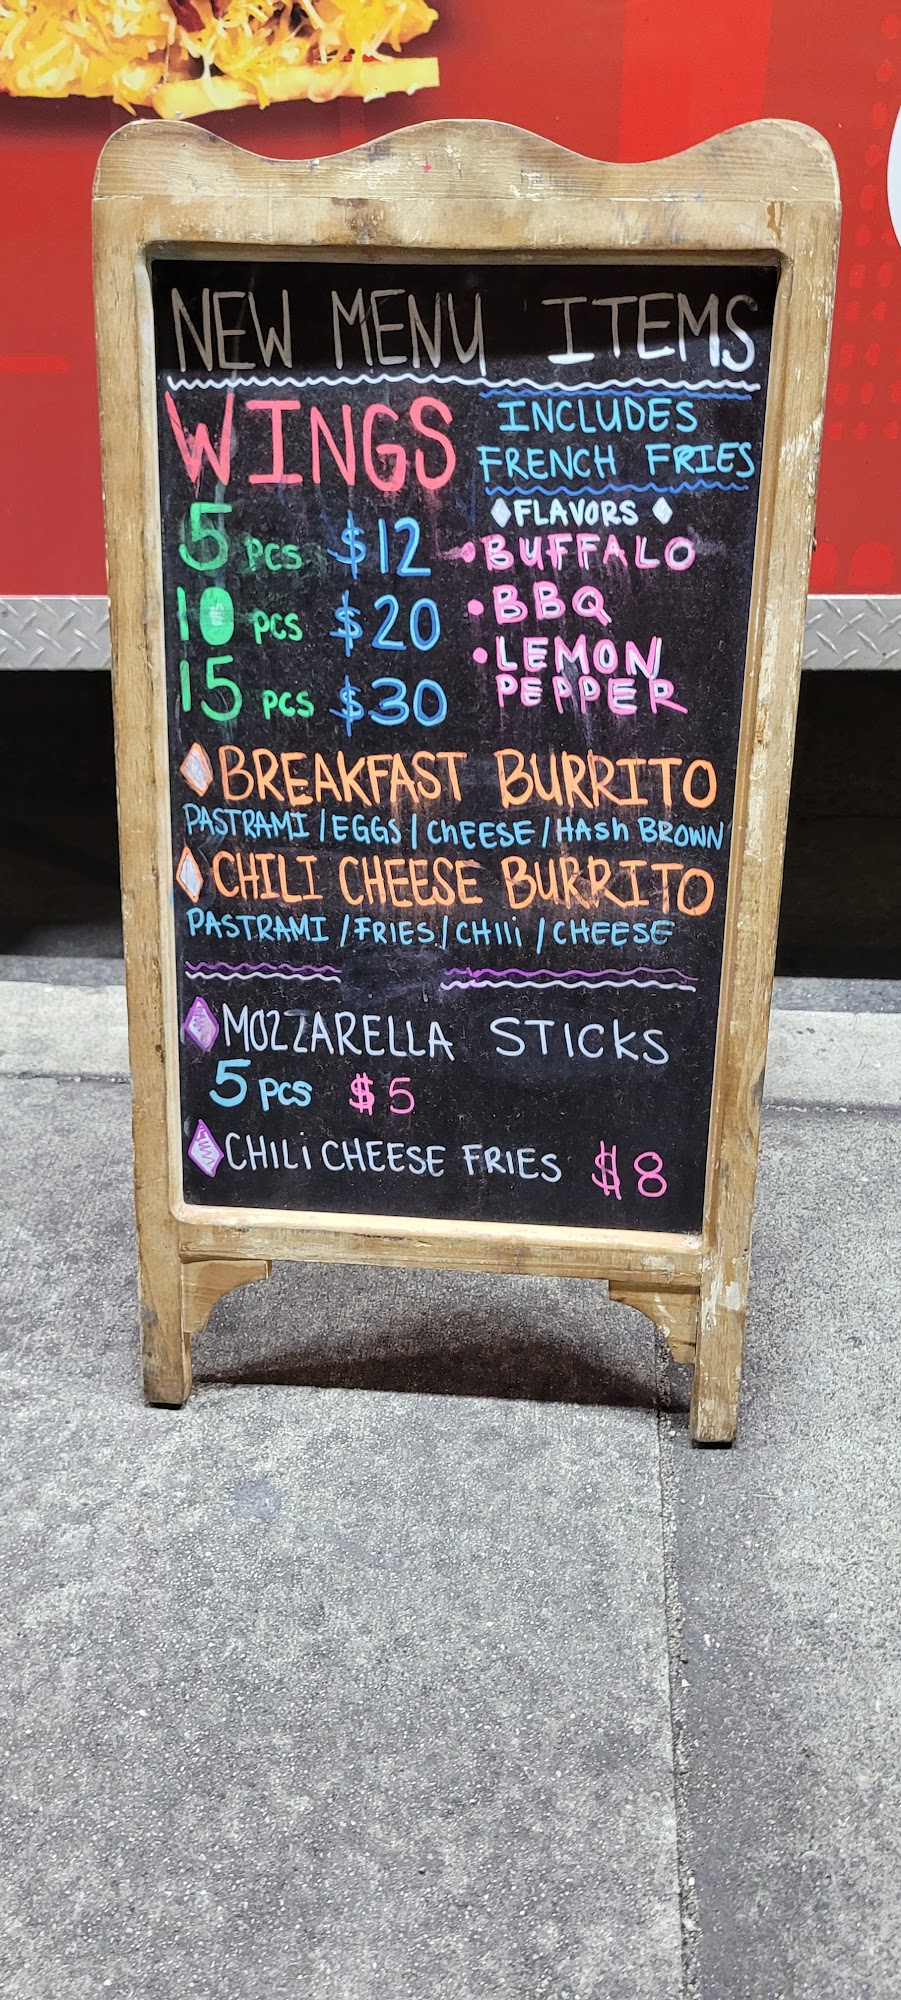 NEW MENU ITEMS
WINGS
INCLUDES
FRENCH FRIES
5 PCS $12
10 PCS $20
15 PCS $30
FLAVORS
• BUFFALO
• BBQ
• LEMON
PEPPER
BREAKFAST BURRITO
PASTRAMI / EGGS / ChEESE / HASh BROWN
CHILI CHEESE BURRITO
PASTRAMI / FRIES / CHIli / CHEESE
MOZZARELLA STICKS
5 PCS $5
CHILi CHEESE FRIES $8